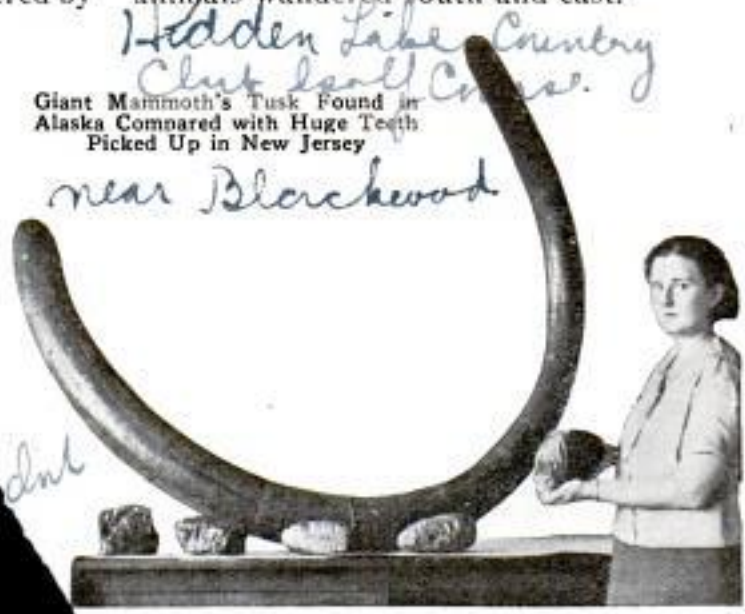 animals wandered south and east.
Hidden Lake Country
Club Golf Course.
Giant Mammoth's Tusk Found in
Alaska Compared with Huge Teeth
Picked Up in New Jersey
near Blackwood